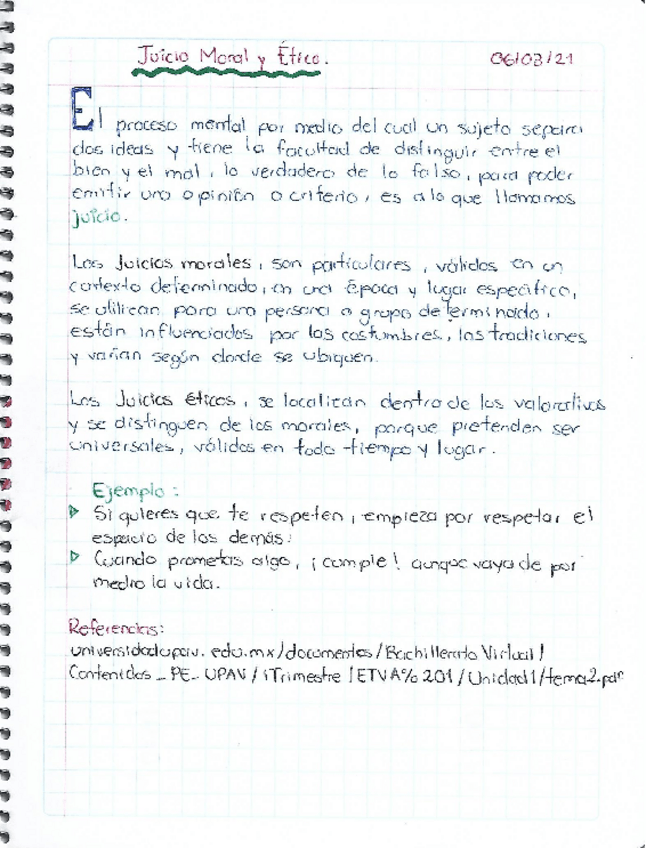 Juicio Moral y Ético. 06/03/21
El proceso mental por medio del cual un sujeto separa
dos ideas y tiene la facultad de distinguir entre el
bien y el mal, lo verdadero de lo falso, para poder
emitir una opinión o criterio, es a lo que llamamos
juicio.
Los Juicios morales, son particulares, válidos en un
contexto determinado, en una época y lugar específico,
se utilizan para una persona o grupo determinado,
están influenciados por las costumbres, las tradiciones
y varían según donde se ubiquen.
Los Juicios éticos, se localizan dentro de los valorativos
y se distinguen de los morales, porque pretenden ser
universales, válidos en todo tiempo y lugar.
Ejemplo:
Si quieres que te respeten, empieza por respetar el
espacio de los demás.
Cuando prometas algo, ¡cumple! aunque vaya de por
medio la vida.
Referencias:
universidadupav.edu.mx/documentos/BachilleratoVirtual/
Contenidos_PE_UPAV/1Trimestre/ETVA%201/Unidad1/tema2.pdf